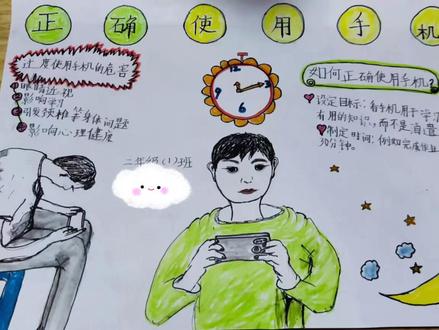 正确使用手机
过度使用手机的危害
眼睛近视
影响学习
引发颈椎等身体问题
影响心理健康
12
3
6
9
二年级(1)班
如何正确使用手机?
设定目标：看手机用于学
有用的知识，而不是消
制定时间：例如完成作业
30分钟。